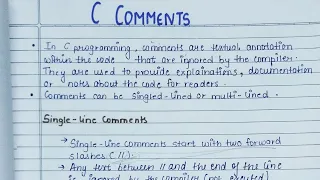 C COMMENTS
• In C programming, comments are textual annotation
within the code that are ignored by the compiler.
They are used to provide explainations, documentation
or notes about the code for readers
• Comments can be singled-lined or multi-lined.
Single-line Comments
→ Single-line comments start with two forward
slashes (//).
→ Any text between // and the end of the line
is ignored by the compiler (not executed)